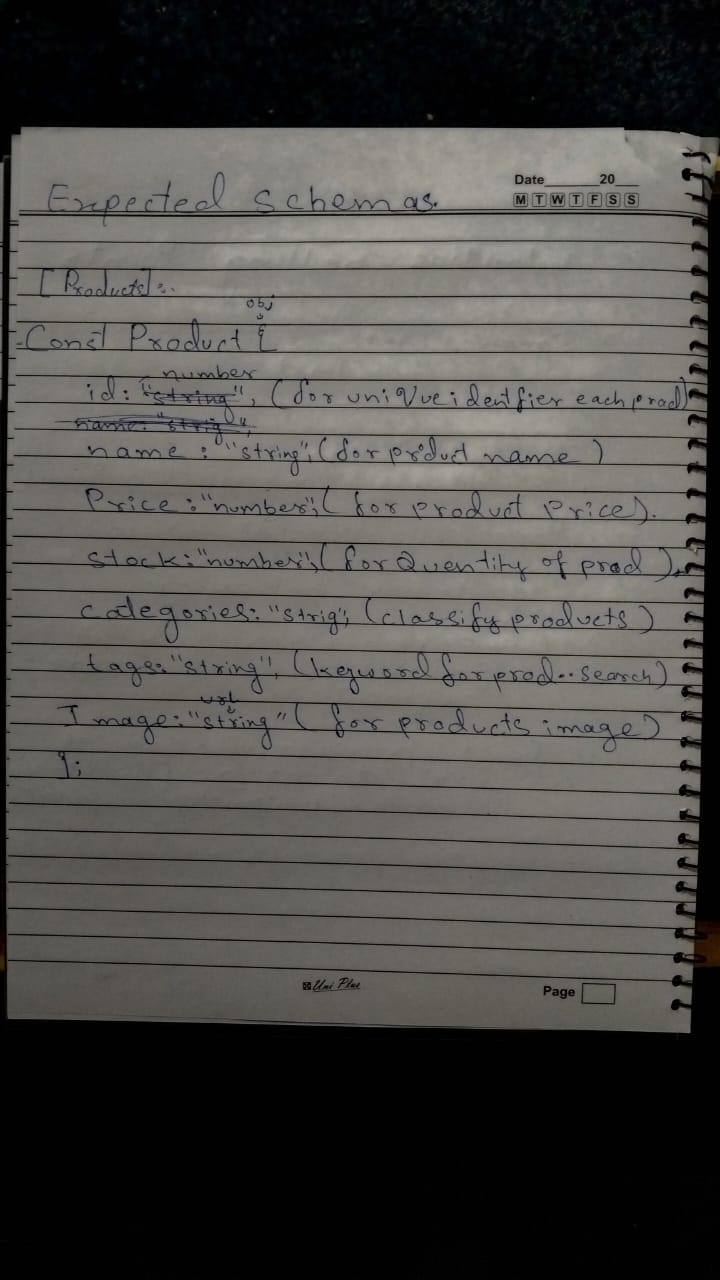 Expected schemas.
Date 20
M T W T F S S
[Products]:-
obj
Const Product {
number
id: "string", (for uniQue identfier each prod)
name: "strig",
name : "string", (for product name)
Price : "number", (for product Price).
Stock: "number", (for Quentity of prod).
Categories: "strig", (classify products)
tags: "string", (keyword for prod.. search)
url
Image: "string" (for products image)
};
Uni Plus
Page